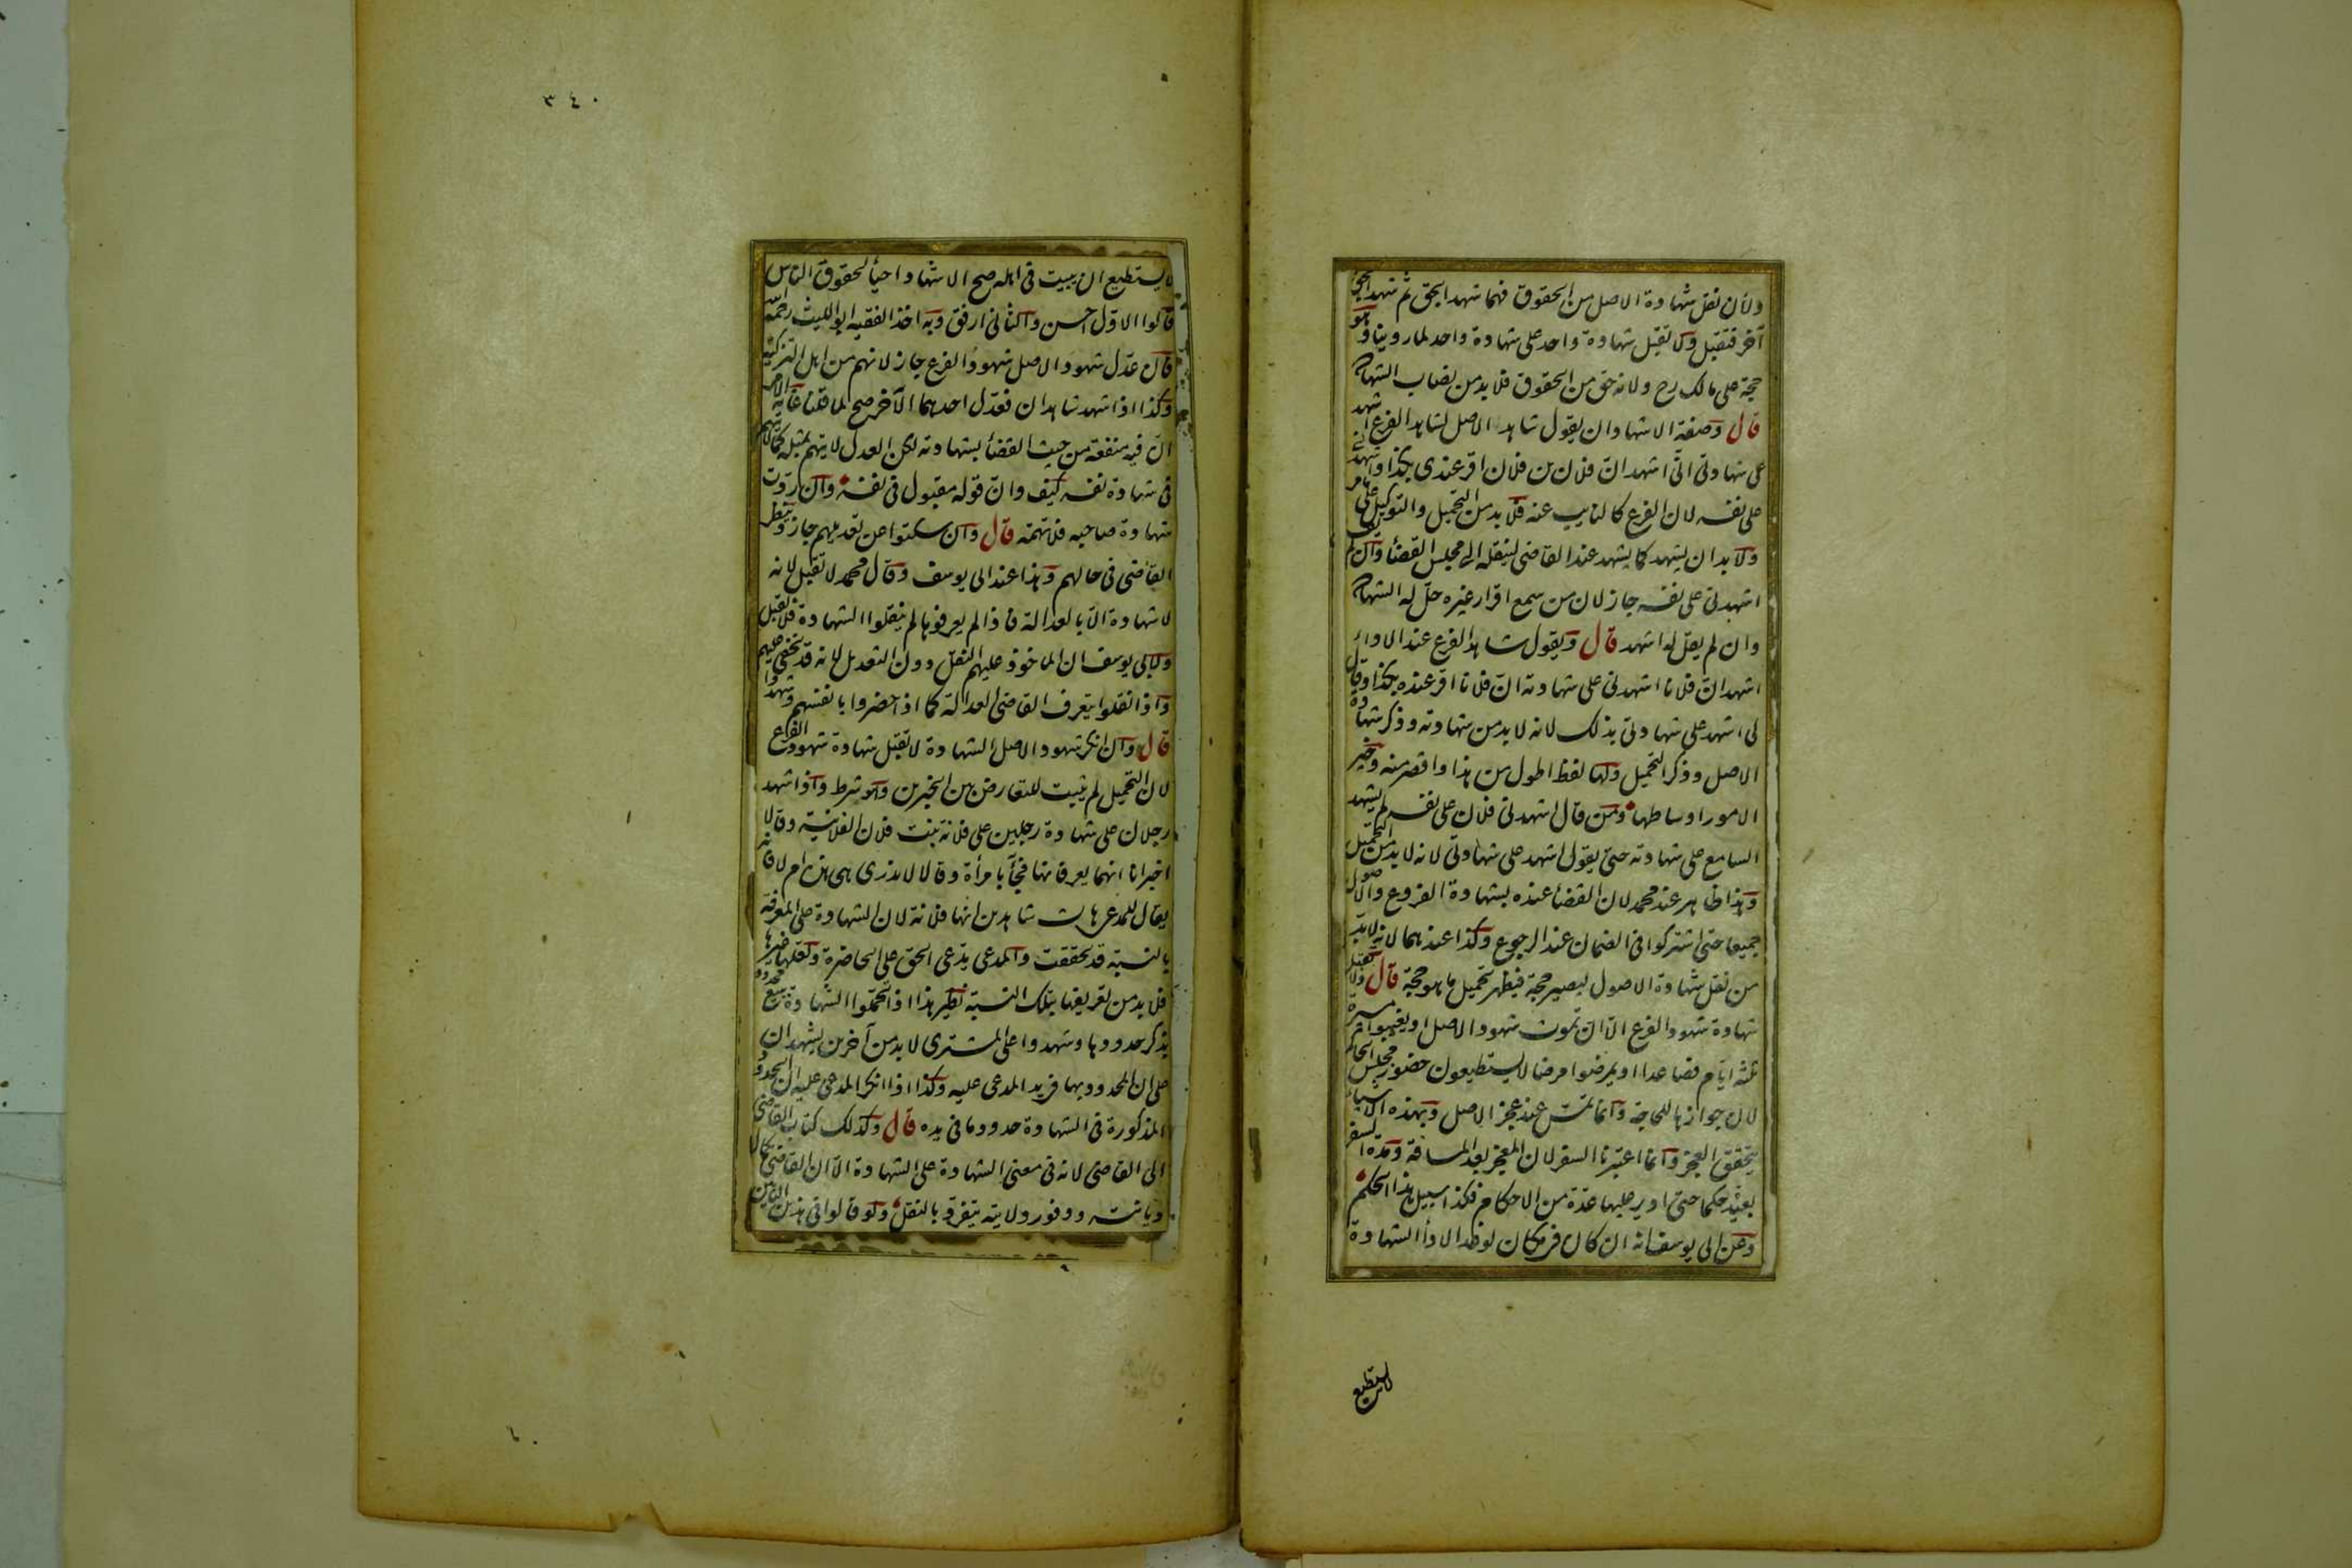 ولأن نقل شهادة الاصل من الحقوق فهما شهدا بحق ثم شهدا بحق
آخر فتقبل ولا تقبل شهادة واحد على شهادة واحد لما روينا وهو
حجة على مالك رح ولانه حق من الحقوق فلا بد من نصاب الشهادة
قال وصفة الاشهاد ان يقول شاهد الاصل لشاهد الفرع اشهد
على شهادتي اني اشهد ان فلان بن فلان اقر عندي بكذا واشهدني
على نفسه لان الفرع كالنايب عنه فلا بد من التحميل والتوكيل على ما مر
ولا بد ان يشهد كما يشهد عند القاضي لينقله الى مجلس القضاء وان لم يقل
اشهدني على نفسه جاز لان من سمع اقرار غيره حل له الشهادة
وان لم يقل له اشهد قال ويقول شاهد الفرع عند الاداء
اشهد ان فلانا اشهدني على شهادته ان فلانا اقر عنده بكذا وقال
لي اشهد على شهادتي بذلك لانه لا بد من شهادته وذكر شهادة
الاصل وذكر التحميل ولها لفظ اطول من هذا واقصر منه وخير
الامور اوساطها ومن قال اشهدني فلان على نفسه لم يشهد
السامع على شهادته حتى يقول اشهد على شهادتي لانه لا بد من التحميل
وهذا ظاهر عند محمد لان القضاء عنده بشهادة الفروع والاصول
جميعا حتى اشتركوا في الضمان عند الرجوع وكذا عندهما لانه لا بد
من نقل شهادة الاصول ليصير حجة فيظهر تحميل ما هو حجة قال ولا تقبل
شهادة شهود الفرع الا ان تموت شهود الاصل او يغيبوا مسيرة
ثلثة ايام فصاعدا او يمرضوا مرضا لا يستطيعون حضور مجلس الحاكم
لان جوازها للحاجة وانما تمس عند عجز الاصل وبهذه الاشياء
يتحقق العجز وانما اعتبرنا السفر لان المعجز بعد المسافة ومدة السفر
بعيدة حكما حتى ادير عليها عدة من الاحكام فكذا سبيل هذا الحكم
وعن ابي يوسف انه ان كان في مكان لو غدا لاداء الشهادة
لا يستطيع
٣٤٠
لا يستطيع ان يبيت في اهله صح الاشهاد احياء لحقوق الناس
قالوا الاول احسن والثاني ارفق وبه اخذ الفقيه ابو الليث رحمه الله
قال عدل شهود الاصل شهود الفرع جاز لانهم من اهل التزكية
وكذا اذا شهد شاهدان فعدل احدهما الآخر صح لما قلنا غاية الامر
ان فيه منفعة من حيث القضاء بشهادته لكن العدل لا يتهم بمثله كما لا يتهم
في شهادة نفسه كيف وان قوله مقبول في نفسه وان ردت
شهادة صاحبه فلا تهمة قال وان سكتوا عن تعديلهم جاز وينظر
القاضي في حالهم وهذا عند ابي يوسف وقال محمد لا تقبل لانه
لا شهادة الا بالعدالة فاذا لم يعرفوها لم ينقلوا الشهادة فلا تقبل
ولابي يوسف ان المأخوذ عليهم النقل دون التعديل لانه قد يخفى عليهم
واذا نقلوا يتعرف القاضي العدالة كما اذا حضروا بانفسهم وشهدوا
قال وان انكر شهود الاصل الشهادة لا تقبل شهادة شهود الفرع
لان التحميل لم يثبت للتعارض بين الخبرين وهو شرط واذا شهد
رجلان على شهادة رجلين على فلانة بنت فلان الفلانية وقالا
اخبرانا انهما يعرفانها فجآ بامرأة وقالا لا ندري هي هذه ام لا فانه
يقال للمدعي هات شاهدين انها فلانة لان الشهادة على المعرفة
بالنسبة قد تحققت والمدعي يدعي الحق على الحاضرة ولعلها غيرها
فلا بد من تعريفها بتلك النسبة نظير هذا اذا تحملوا الشهادة ببيع محدودة
بذكر حدودها وشهدوا على المشتري لا بد من آخرين يشهدان
على ان المحدود بها في يد المدعى عليه وكذا اذا انكر المدعى عليه ان الحدود
المذكورة في الشهادة حدود ما في يده قال وكذلك كتاب القاضي
الى القاضي لانه في معنى الشهادة على الشهادة الا ان القاضي لكمال
ديانته ووفور ولايته يتفرد بالنقل ولو قالوا في هذين البابين